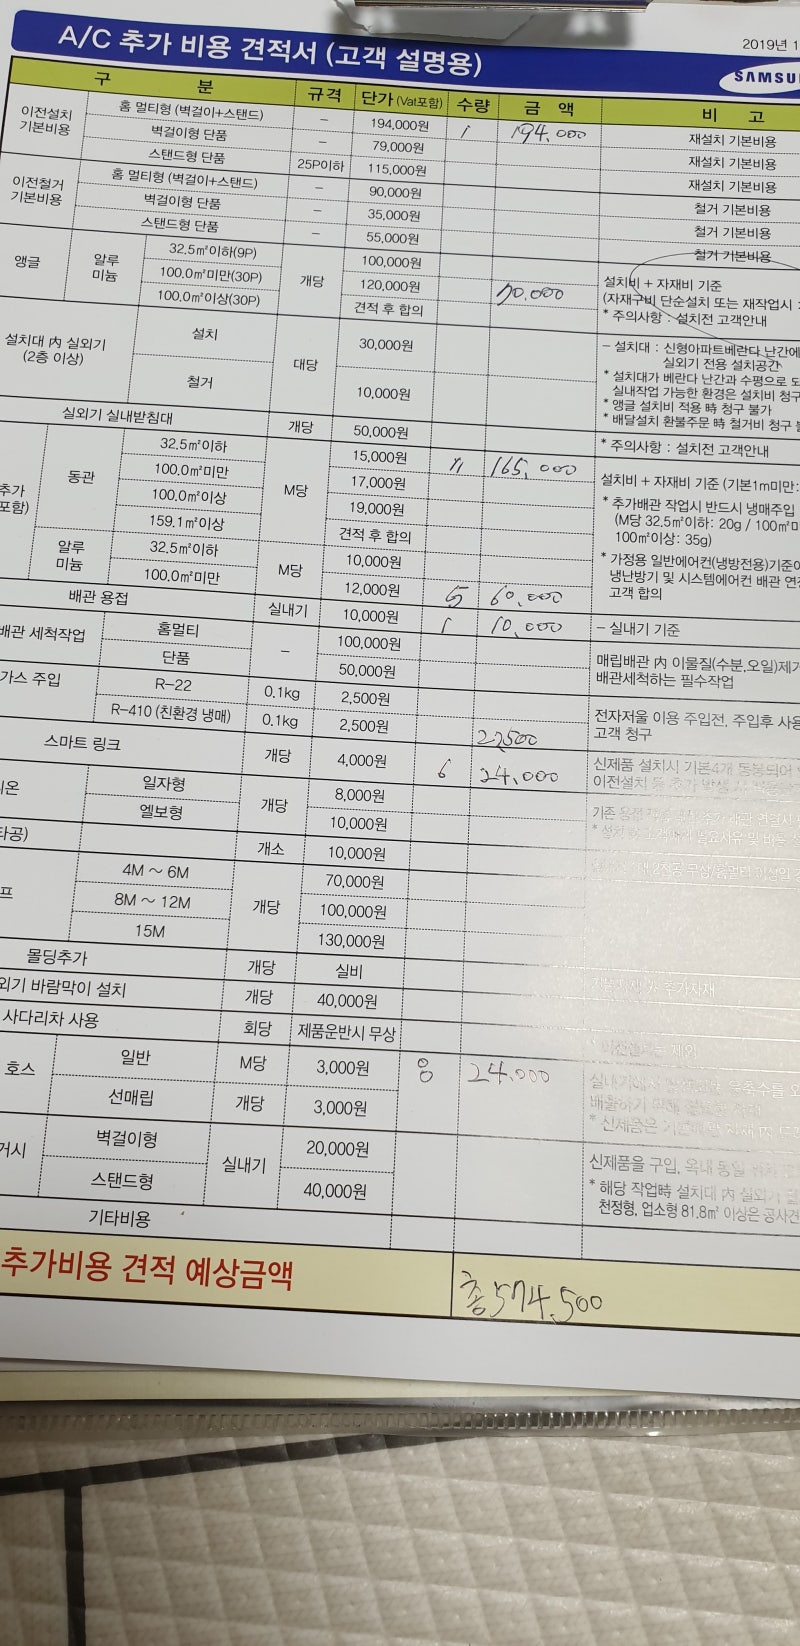 2019년 1
A/C 추가 비용 견적서 (고객 설명용)
SAMSU
구 분 규격 단가 (Vat포함) 수량 금 액 비 고
이전설치 기본비용
홈 멀티형 (벽걸이+스탠드) – 194,000원 1 194,000 재설치 기본비용
벽걸이형 단품 – 79,000원 재설치 기본비용
스탠드형 단품 25P이하 115,000원 재설치 기본비용
이전철거 기본비용
홈 멀티형 (벽걸이+스탠드) – 90,000원 철거 기본비용
벽걸이형 단품 – 35,000원 철거 기본비용
스탠드형 단품 – 55,000원 철거 기본비용
앵글 알루미늄 개당
32.5㎡이하(9P) 100,000원
100.0㎡미만(30P) 120,000원 70,000
100.0㎡이상(30P) 견적 후 합의
설치비 + 자재비 기준
(자재구비 단순설치 또는 재작업시 :
* 주의사항 : 설치전 고객안내
설치대 内 실외기
(2층 이상)
설치 대당 30,000원
철거 10,000원
– 설치대 : 신형아파트베란다 난간에
실외기 전용 설치공간
* 설치대가 베란다 난간과 수평으로 되
실내작업 가능한 환경은 설치비 청구
* 앵글 설치비 적용 時 청구 불가
* 배달설치 환불주문 時 철거비 청구
실외기 실내받침대 개당 50,000원 * 주의사항 : 설치전 고객안내
추가
포함)
동관 M당
32.5㎡이하 15,000원 11 165,000
100.0㎡미만 17,000원
100.0㎡이상 19,000원
159.1㎡이상 견적 후 합의
알루미늄 M당
32.5㎡이하 10,000원
100.0㎡미만 12,000원 5 60,000
설치비 + 자재비 기준 (기본1m미만:
* 추가배관 작업시 반드시 냉매주입
(M당 32.5㎡이하: 20g / 100㎡미
100㎡이상: 35g)
* 가정용 일반에어컨(냉방전용)기준이
냉난방기 및 시스템에어컨 배관 연
고객 합의
배관 용접 실내기 10,000원 1 10,000 – 실내기 기준
배관 세척작업 –
홈멀티 100,000원
단품 50,000원
매립배관 内 이물질(수분,오일)제거
배관세척하는 필수작업
가스 주입
R-22 0.1kg 2,500원
R-410 (친환경 냉매) 0.1kg 2,500원 27,500
전자저울 이용 주입전, 주입후 사용
고객 청구
스마트 링크 개당 4,000원 6 24,000
신제품 설치시 기본4개 동봉되어
이전설치 등 추가 발생
개당
일자형 8,000원
엘보형 10,000원
타공) 개소 10,000원
프 개당
4M ～ 6M 70,000원
8M ～ 12M 100,000원
15M 130,000원
몰딩추가 개당 실비
외기 바람막이 설치 개당 40,000원
사다리차 사용 회당 제품운반시 무상
호스
일반 M당 3,000원 8 24,000
선매립 개당 3,000원
거시 실내기
벽걸이형 20,000원
스탠드형 40,000원
신제품을 구입, 옥내 동일
* 해당 작업時 설치대 内 실외기
천정형, 업소형 81.8㎡ 이상은 공사견
기타비용
추가비용 견적 예상금액 총 574,500